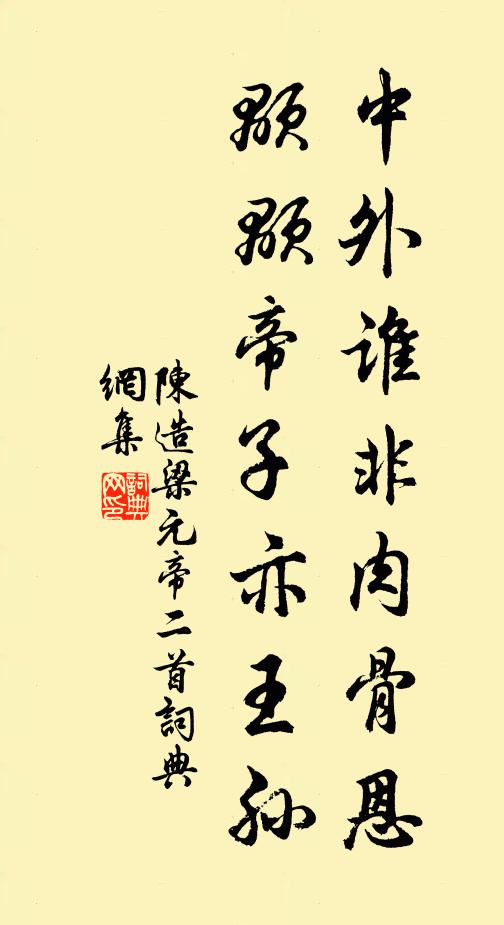 中外誰非肉骨恩
顒顒帝子亦王孫
陳造梁元帝二首詞典
網集
詞典
网印